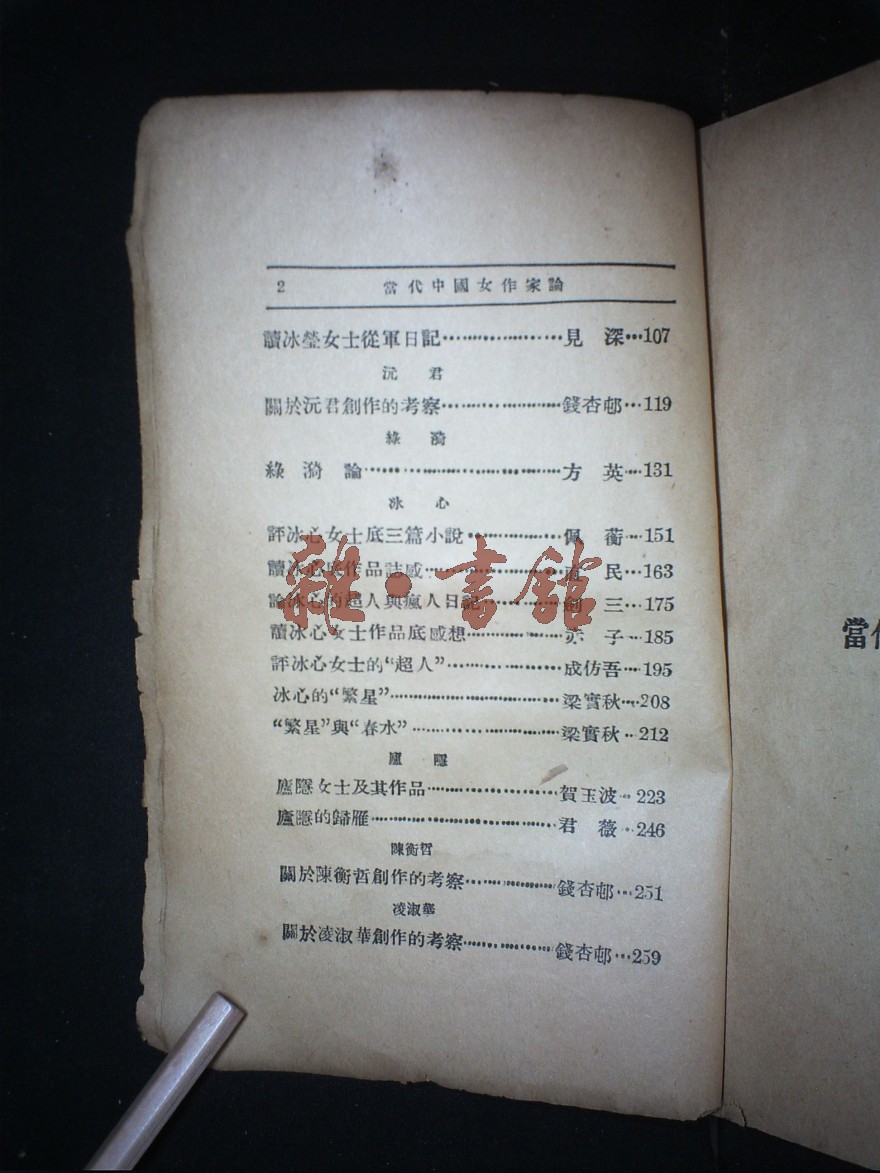 2 當代中國女作家論
讀冰瑩女士從軍日記……………………見 深…107
沅 君
關於沅君創作的考察……………………錢杏邨…119
綠 漪
綠 漪 論……………………方 英…131
冰 心
評冰心女士底三篇小說……………………佩 蘅…151
讀冰心底作品誌感……………………直 民…163
論冰心的超人與瘋人日記……………………劍 三…175
讀冰心女士作品底感想……………………赤 子…185
評冰心女士的“超人”……………………成仿吾…195
冰心的“繁星”……………………梁實秋…208
“繁星”與“春水”……………………梁實秋…212
廬隱
廬隱女士及其作品……………………賀玉波…223
廬隱的歸雁……………………君 薇…246
陳衡哲
關於陳衡哲創作的考察……………………錢杏邨…251
凌淑華
關於凌淑華創作的考察……………………錢杏邨…259
雜·書館
當